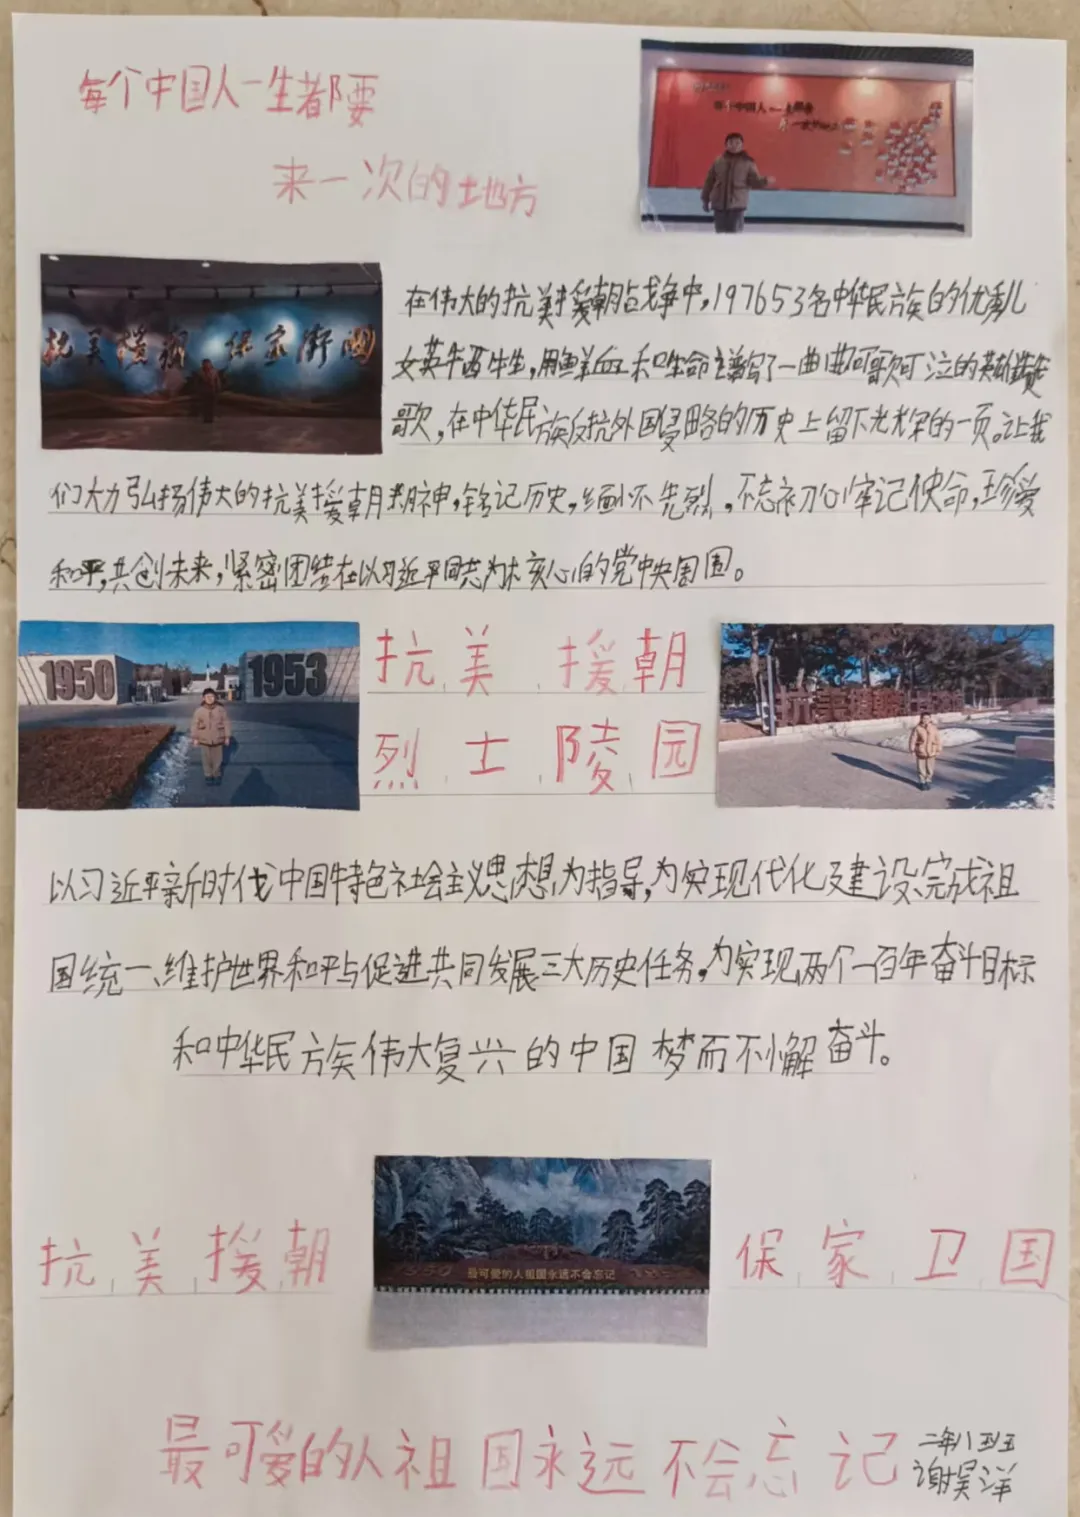 每个中国人一生都要
来一次的地方
抗美援朝 保家卫国
在伟大的抗美援朝战争中,197653名中华民族的优秀儿
女英牺牲,用鲜血和生命谱写了一曲曲可歌可泣的英雄赞
歌,在中华民族反抗外国侵略的历史上留下光辉的一页。让我
们大力弘扬伟大的抗美援朝精神,铭记历史,缅怀先烈,不忘初心牢记使命,珍爱
和平,共创未来,紧密团结在以习近平同志为核心的党中央周围。
1950 1953
抗美援朝
烈士陵园
以习近平新时代中国特色社会主义思想为指导,为实现代化建设、完成祖
国统一、维护世界和平与促进共同发展三大历史任务,为实现两个一百年奋斗目标
和中华民族伟大复兴的中国梦而不懈奋斗。
抗美援朝
最可爱的人祖国永远不会忘记
保家卫国
最可爱的人祖国永远不会忘记
二年八班
谢昊洋